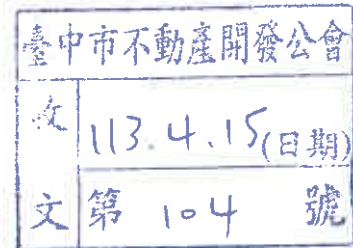 臺中市不動產開發公會
收 113.4.15(日期)
文 第 104 號